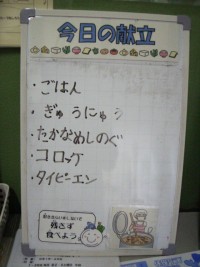 今日の献立
・ごはん
・ぎゅうにゅう
・たかなめしのぐ
・コロッケ
・タイピーエン
残さず
食べよう